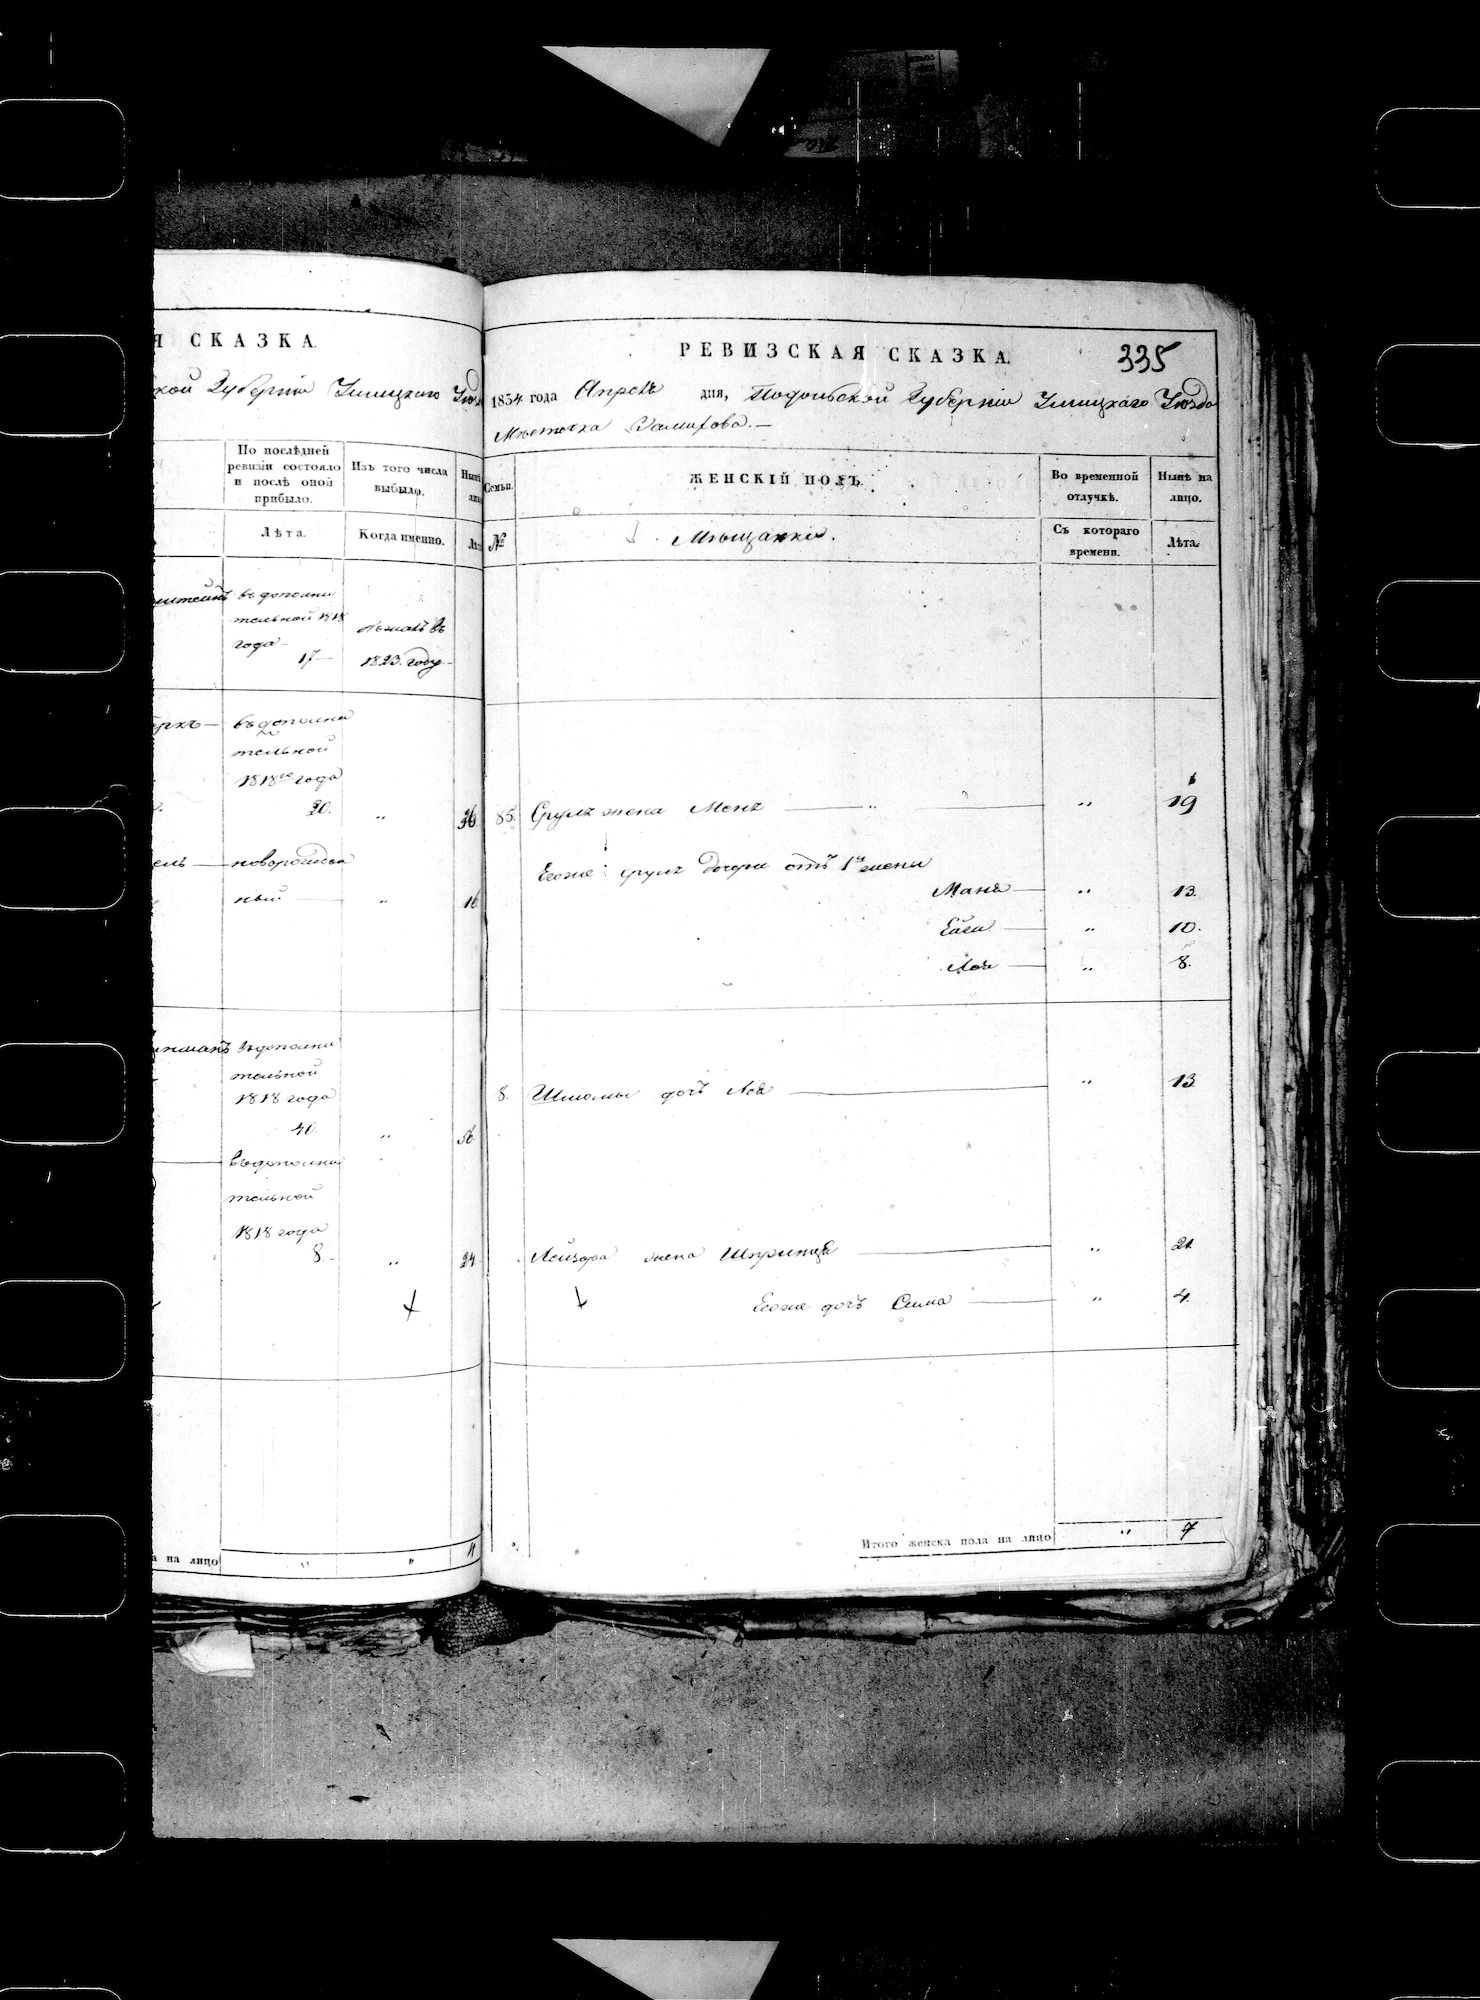 Я СКАЗКА.
кой Губерніи Ушицкаго Уѣз
По послѣдней
ревизіи состояло
и послѣ оной
прибыло.
Изъ того числа
выбыло.
Нынѣ
Лѣта.
Когда именно.
Лѣт
въ дополни
тельной 1818
года
17
1823. году.
въ дополни
тельной
1818го года
20.
„
36
новорожден
ный
„
16
въ дополни
тельной
1818 года
40.
„
56
въ дополни
тельной
1818 года
8.
„
24.
а на лицо
„
„
4
РЕВИЗСКАЯ СКАЗКА.
335
1834 года Апрель дня, Подольской Губерніи Ушицкаго Уѣзда
Мѣстечка Замихова.
Семьи.
ЖЕНСКІЙ ПОЛЪ.
Во временной
отлучкѣ.
Нынѣ на
лицо.
№
Мѣщанки.
Съ котораго
времени.
Лѣта.
85. Сруля жена Меня „ 19
Егоже Сруля дочери отъ 1й жены
Маня „ 13.
Ейга „ 10.
Лея „ 8.
8. Шломы дочь Лея „ 13
Лейзора жена Шпринца „ 21.
Егоже дочь Сима „ 4.
Итого женска пола на лицо „ 7